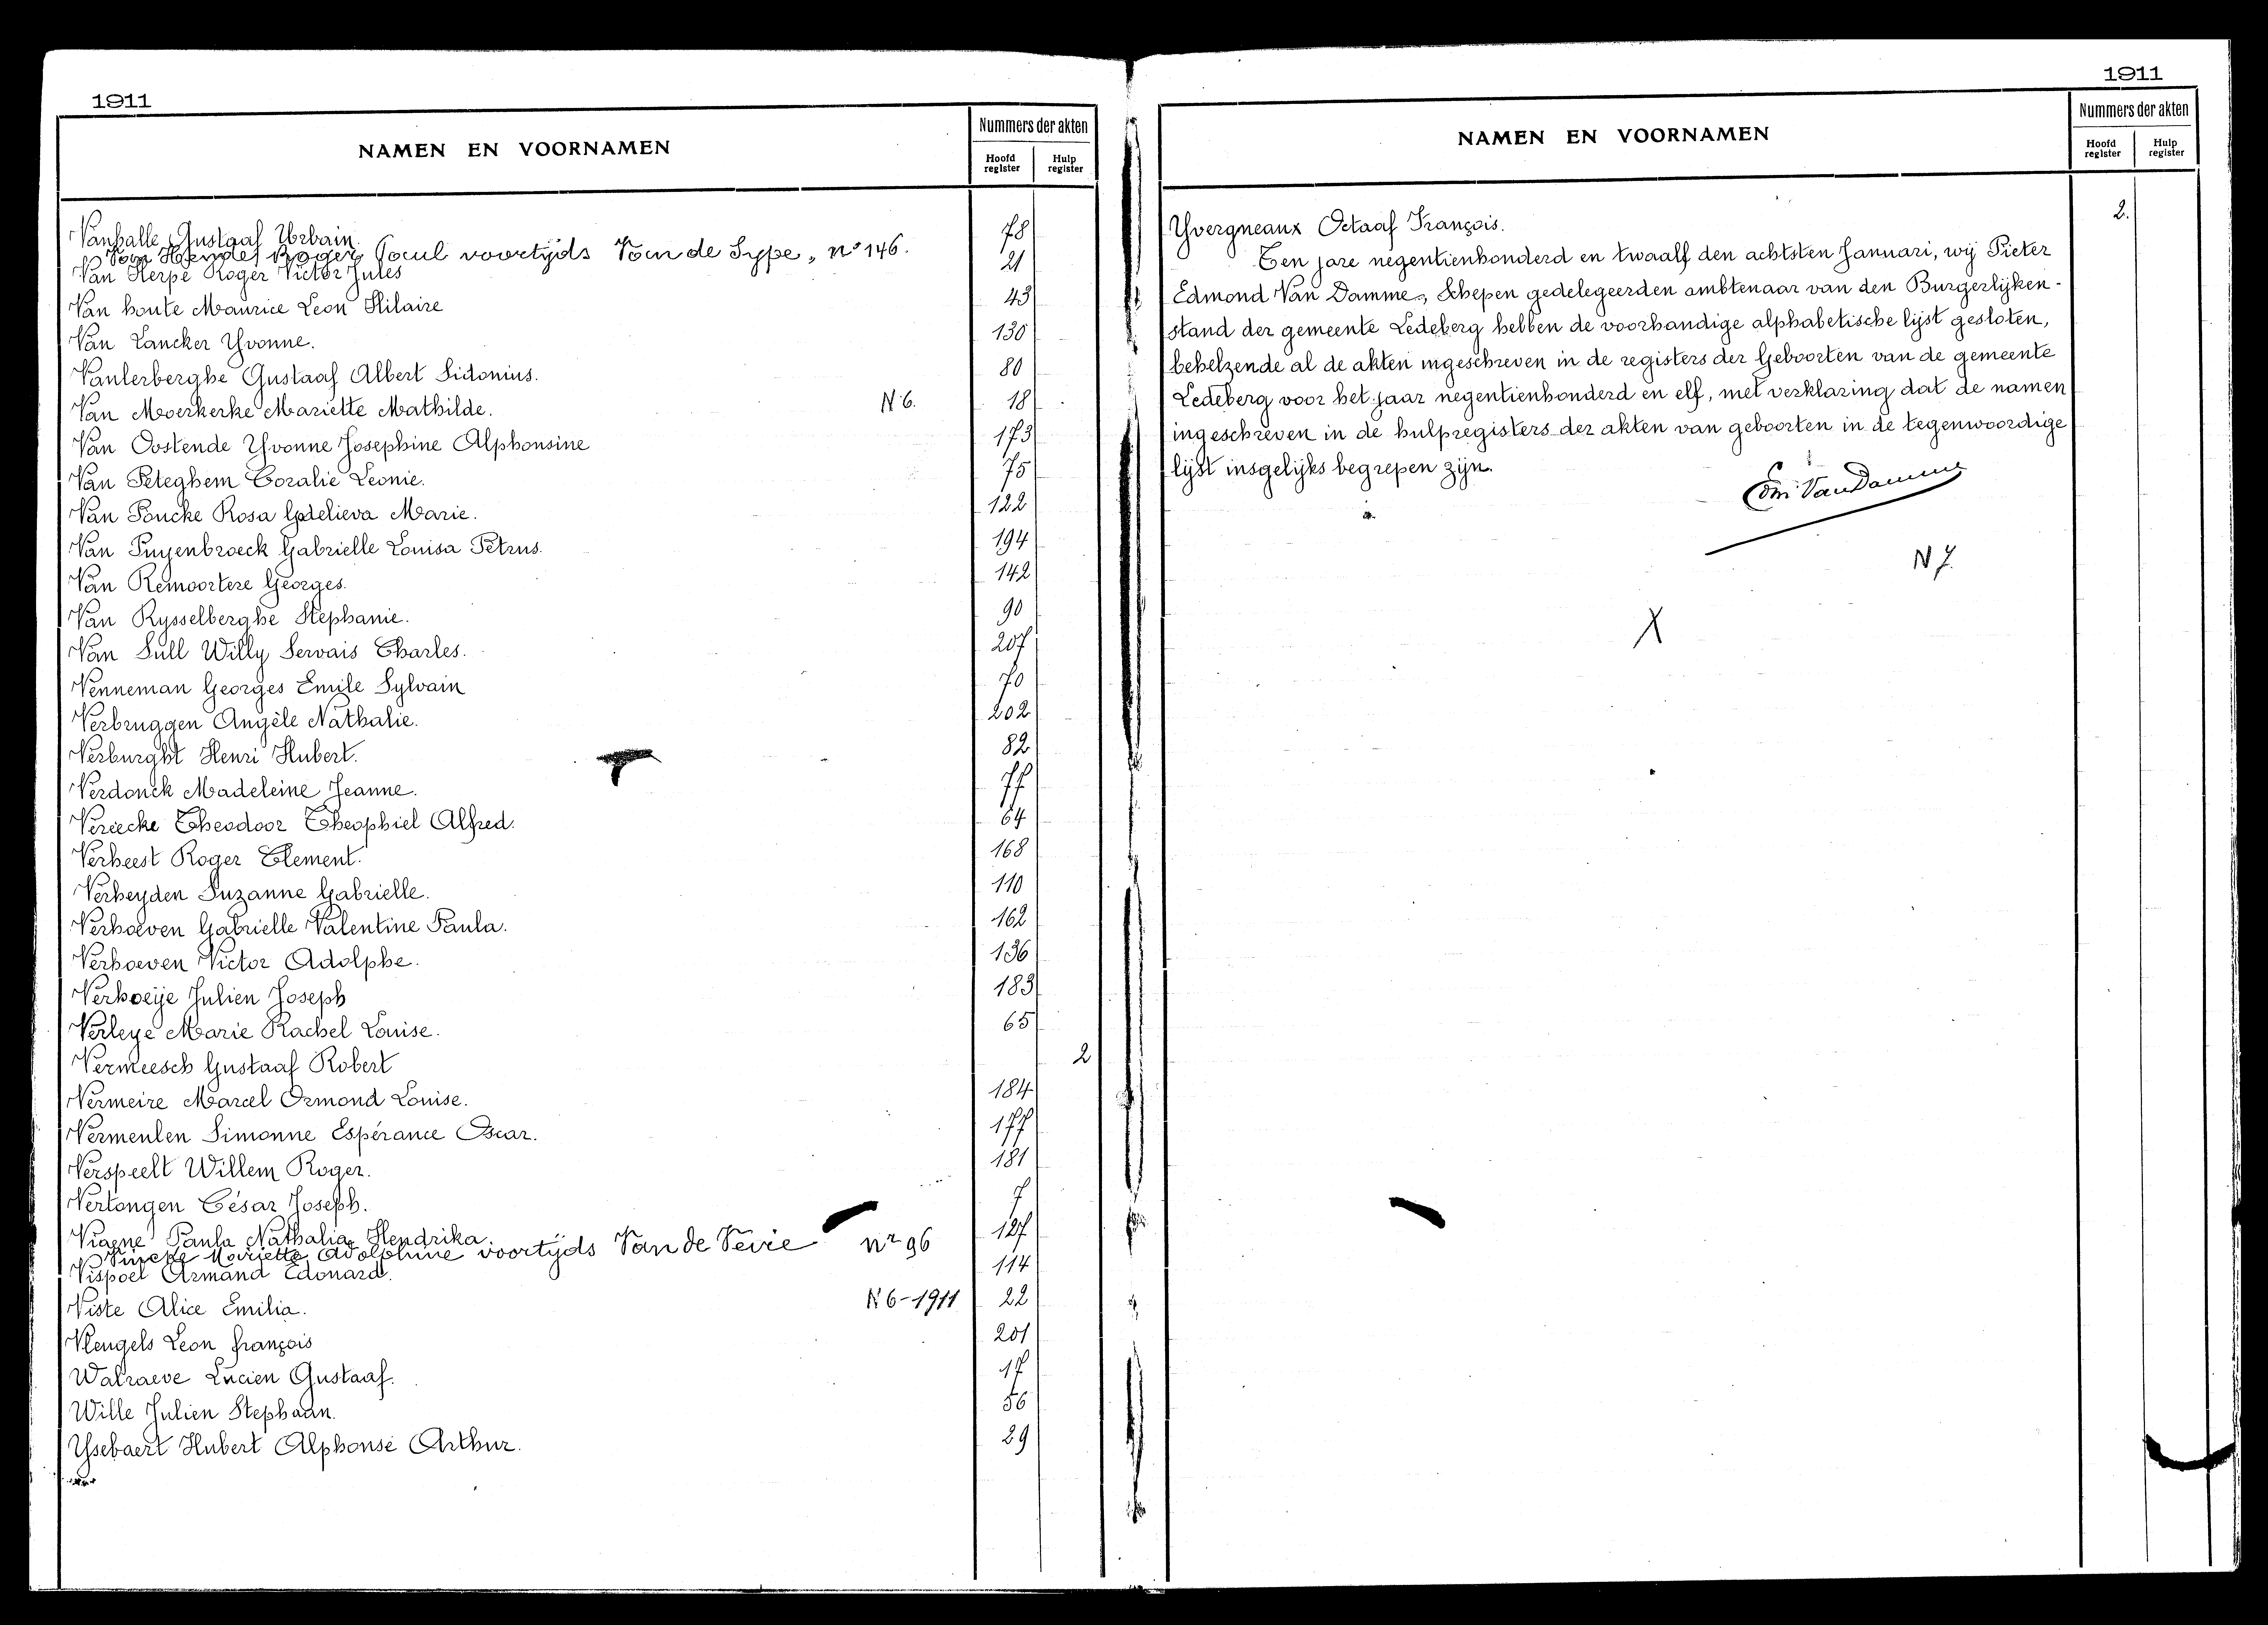 1911
NAMEN EN VOORNAMEN
Nummers der akten
Hoofd register
Hulp register
Vanhalle Gustaaf Urbain. 78
Roger Paul voortijds Van de Sype, n° 146.
Van Herpe Roger Victor Jules 21
Van houte Maurice Leon Hilaire 43
Van Lancker Yvonne. 130
Vanlerberghe Gustaaf Albert Sidonius. 80
Van Moerkerke Mariette Mathilde. N 6. 18
Van Oostende Yvonne Josephine Alphonsine 173
Van Peteghem Coralie Leonie. 75
Van Poucke Rosa Godelieva Marie. 122
Van Puyenbroeck Gabrielle Louisa Petrus. 194
Van Remoortere Georges. 142
Van Rysselberghe Stephanie. 90
Van Sull Willy Servais Charles. 207
Venneman Georges Emile Sylvain 70
Verbruggen Angèle Nathalie. 202
Verburght Henri Hubert. 82
Verdonck Madeleine Jeanne. 77
Veriecke Theodoor Theophiel Alfred. 64
Verheest Roger Clement. 168
Verheyden Suzanne Gabrielle. 110
Verhoeven Gabrielle Valentine Paula. 162
Verhoeven Victor Adolphe. 136
Verhoeije Julien Joseph 183
Verleye Marie Rachel Louise. 65
Vermeesch Gustaaf Robert 2
Vermeire Marcel Ormond Louise. 184
Vermeulen Simonne Espérance Oscar. 177
Verspeelt Willem Roger. 181
Vertongen César Joseph. 7
Viaene Paula Nathalia Hendrika. 127
Vincke Mariette Adolphine voortijds Van de Vevie nr 96
Vispoel Armand Edouard. 114
Viste Alice Emilia. N 6-1911 22
Vleugels Leon françois 201
Walraeve Lucien Gustaaf. 17
Wille Julien Stephaan. 56
Ysebaert Hubert Alphonse Arthur. 29
1911
NAMEN EN VOORNAMEN
Nummers der akten
Hoofd register
Hulp register
Yvergneaux Octaaf François. 2.
Ten jare negentienhonderd en twaalf den achtsten Januari, wij Pieter
Edmond Van Damme, Schepen gedelegeerden ambtenaar van den Burgerlijken-
stand der gemeente Ledeberg hebben de voorhandige alphabetische lijst gesloten,
behelzende al de akten ingeschreven in de registers der Geboorten van de gemeente
Ledeberg voor het jaar negentienhonderd en elf, met verklaring dat de namen
ingeschreven in de hulpregisters der akten van geboorten in de tegenwoordige
lijst insgelijks begrepen zijn.
Edm. Van Damme
N 7.
X